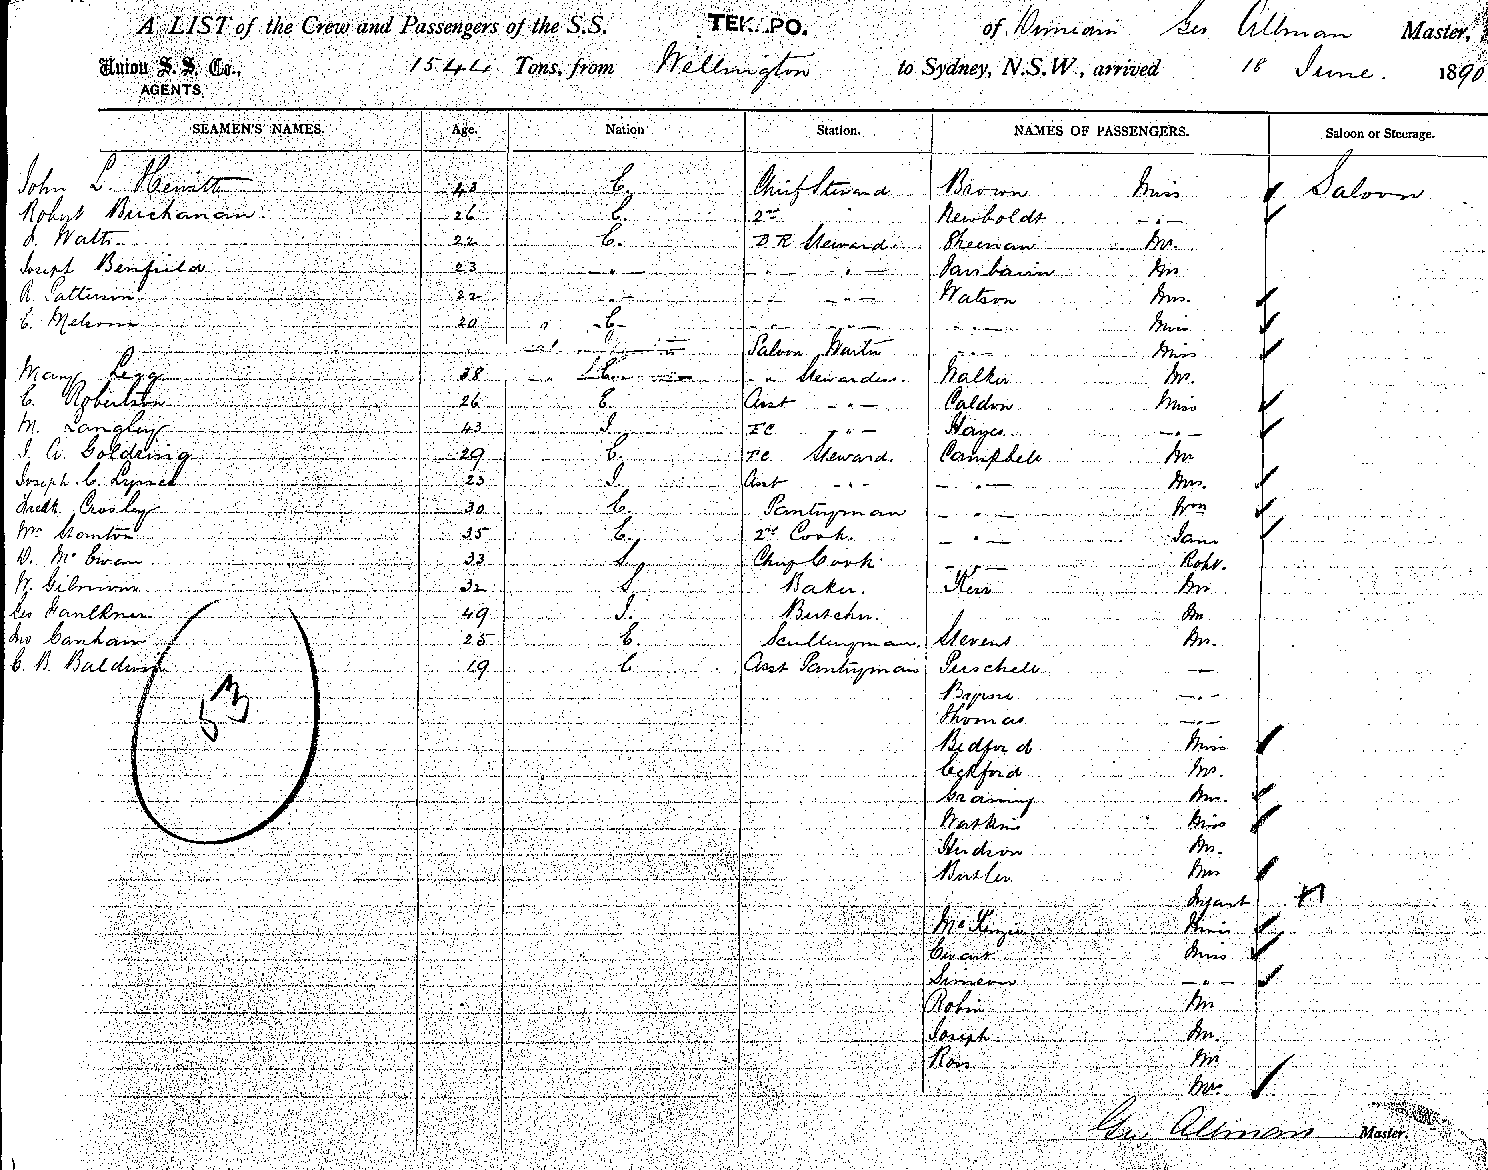 A LIST of the Crew and Passengers of the S.S. TEK PO. of Geo Allman Master,
Union S. S. Co., 1544 Tons, from Wellington to Sydney, N.S.W., arrived 18 June. 1890
AGENTS.
SEAMEN'S NAMES. Age. Nation Station. NAMES OF PASSENGERS. Saloon or Steerage.
John L. Hewitt 43 E. Chief Steward Brown Miss Saloon
Robert Buchanan 26 E. 2nd Newboldt -"-
Watts 22 E. Steward. Sheenan Mr.
Joseph Benfield 23 " -" " Mr
R. Patterson 22 " " Watson Mrs.
E. 20 " E " " Miss
" Saloon Waiter " Miss
Mary Legg 38 " E. " Stewardess. Walker Mr.
E. Robertson 26 E. Asst " Caldon Miss
M. Langley 43 I. " Hayes "
J. A. Goldring 29 E. Steward. Campbell Mr
Joseph C. 23 I. Asst " " Mrs.
Crosley 30 E. Pantryman " Wm
Wm Stanton 35 E. 2nd Cook. " Jane
D. McEwan 33 S. Chief Cook " Robt.
W. Gilmour 32 S. Baker. Kerr Mr
Geo Faulkner 49 I. Butcher. Mr
Jno Canham 25 E. Scullleryman. Stevens Mr.
C. B. Baldwin 19 E Asst Pantryman —
-"-
Thomas -"-
53
Bedford Miss
Eckford Mr.
Mrs.
Watkins Miss
Hudson Mr.
Butler Mrs
Infant
McKenzie Miss
Ewart Miss
Simeon -"-
Robin Mr
Joseph Mr.
Ross Mr
Mrs
Geo. Allman Master.